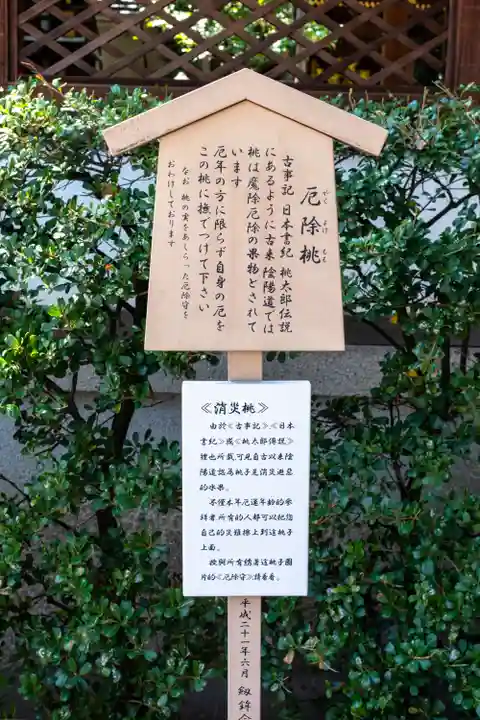 厄除桃
やく よけ もも
古事記 日本書紀 桃太郎伝説
にあるように古来 陰陽道では
桃は魔除厄除の果物とされて
います
厄年の方に限らず自身の厄を
この桃に撫でつけて下さい
なお 桃の実をあしらった厄除守を
おわけしております
《消災桃》
由於《古事記》、《日本
書紀》或《桃太郎傳說》
裡也所載,可見自古以來陰
陽道認為桃子是消災避惡
的水果。
不僅本年厄運年齡的參
拜者,所有的人都可以把您
自己的災難擦上到這桃子
上面。
授與所有綉著這桃子圖
片的《厄除守》請看看。
平成二十一年六月 剱鉾